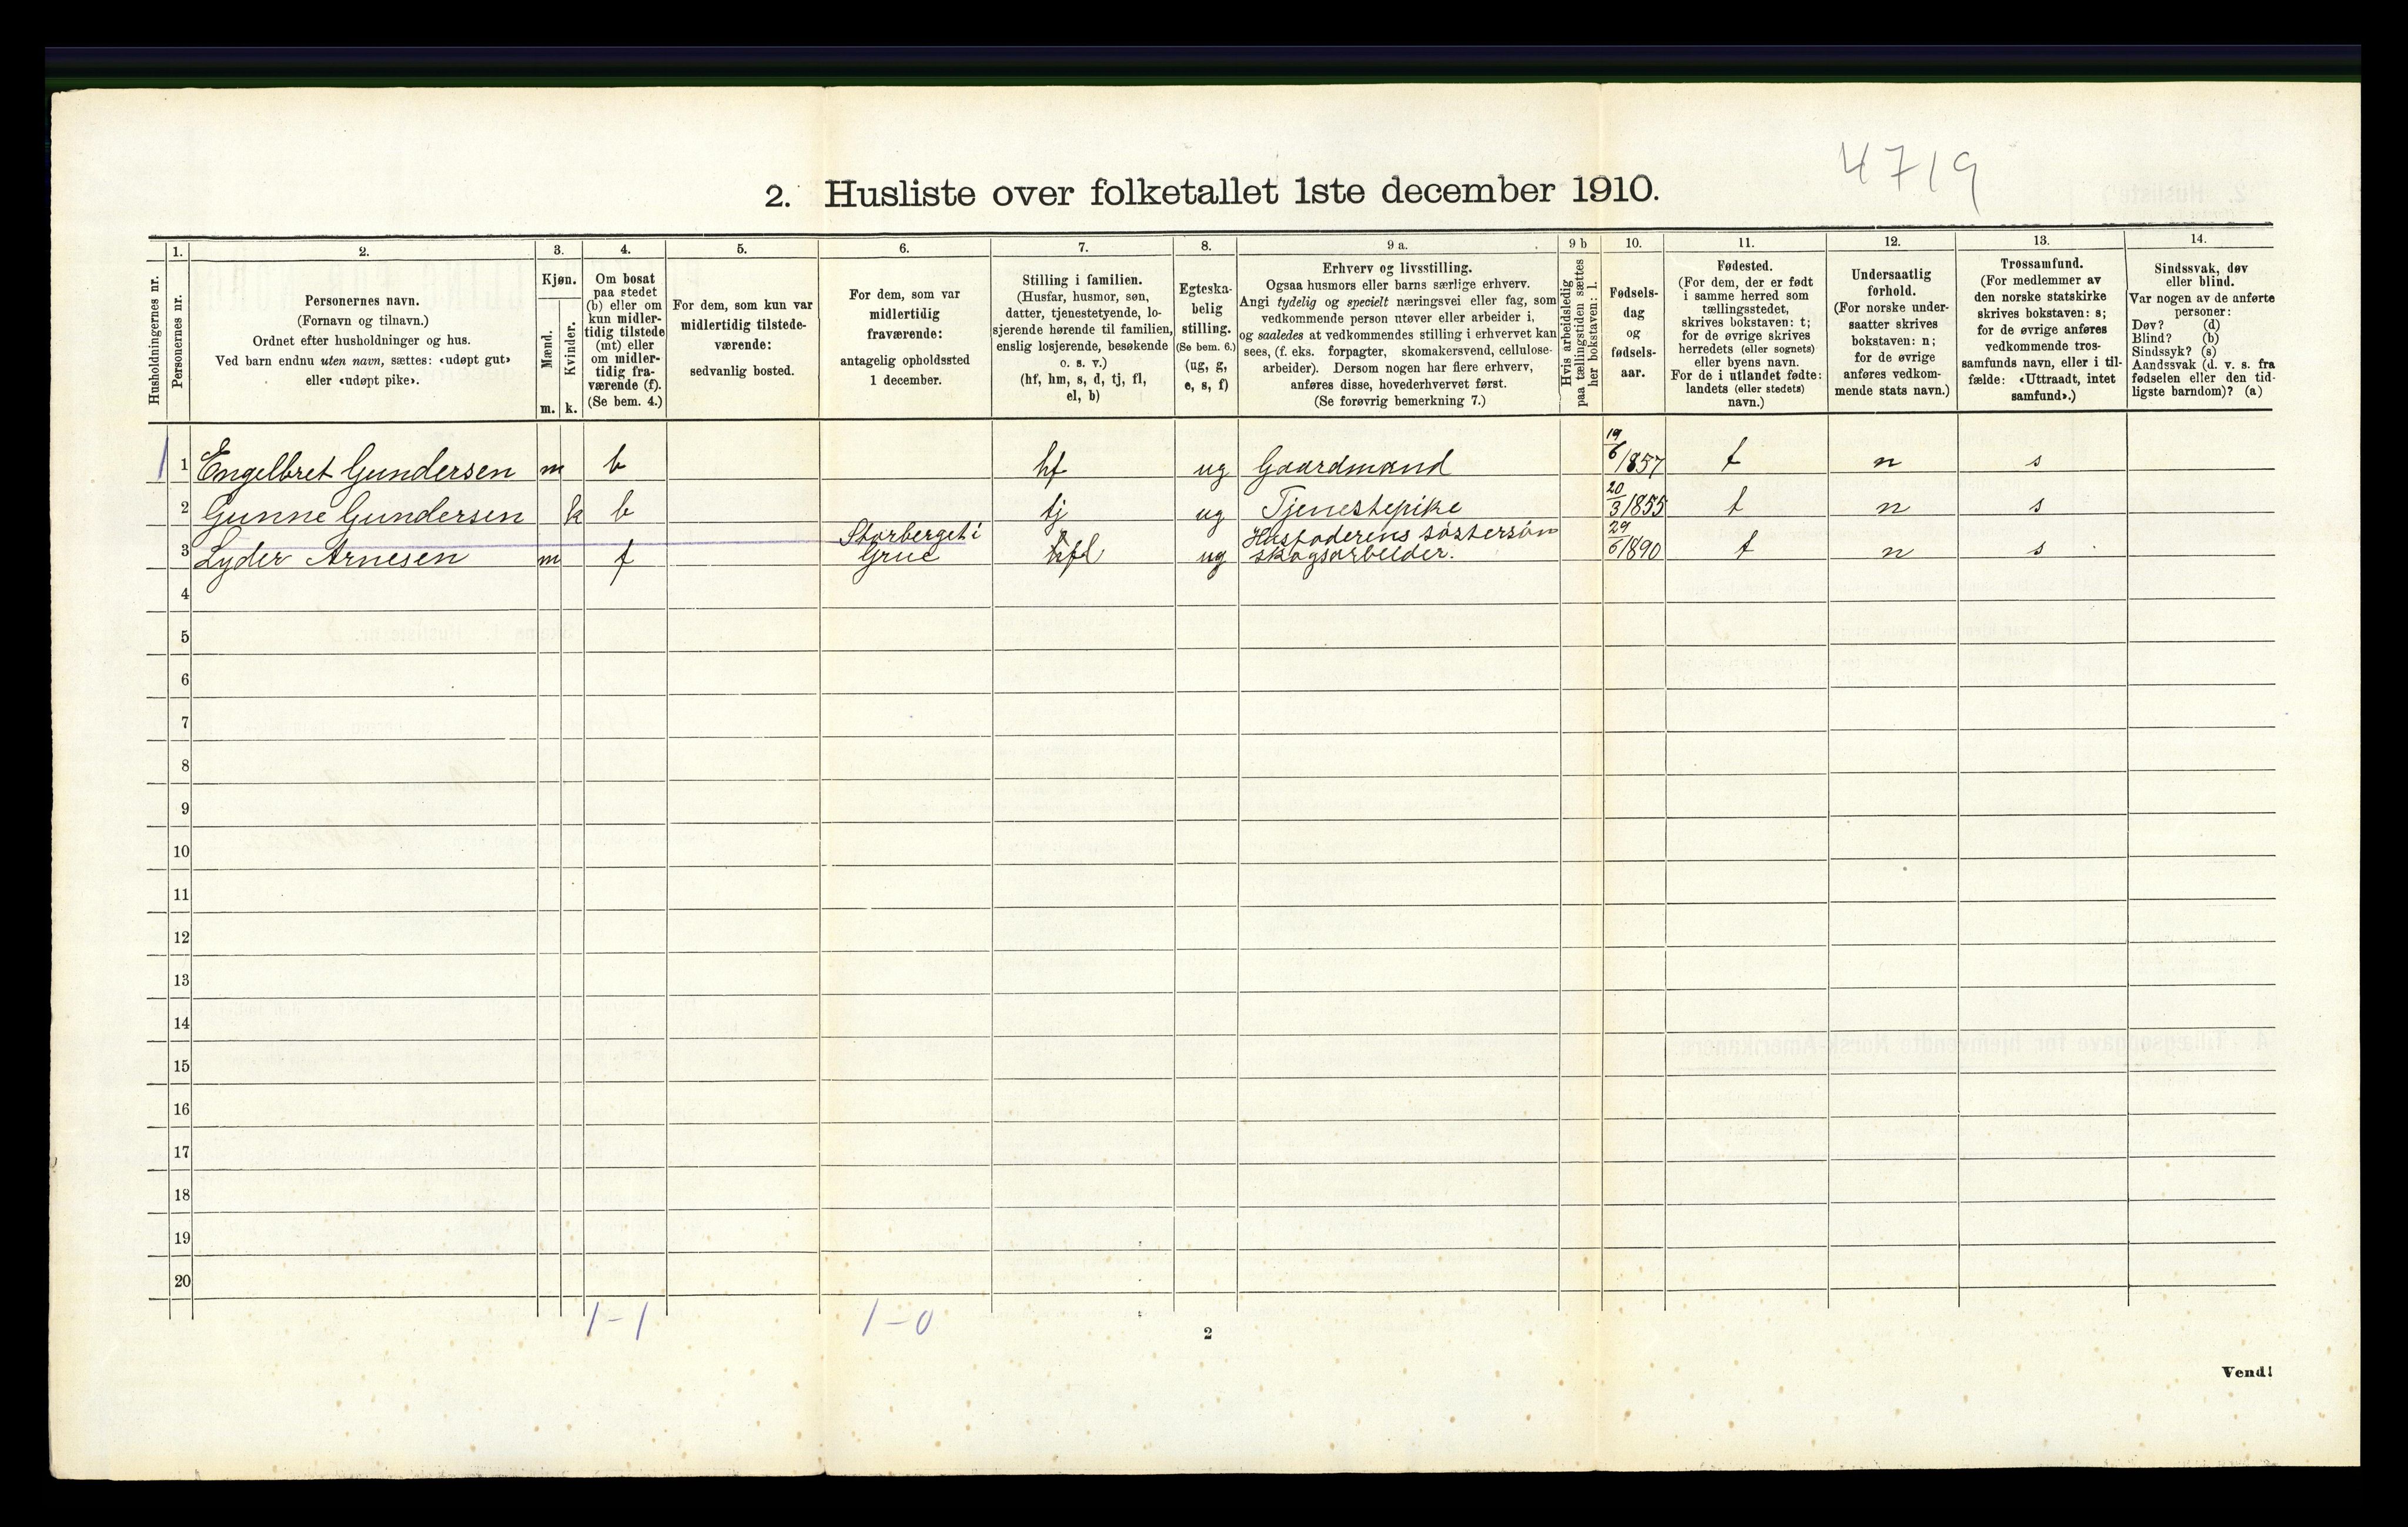 4719
2. Husliste over folketallet 1ste december 1910.
Husholdningernes nr.
1.
Personernes nr.
2.
Personernes navn.
(Fornavn og tilnavn.)
Ordnet efter husholdninger og hus.
Ved barn endnu uten navn, sættes: «udøpt gut»
eller «udøpt pike».
3.
Kjøn.
Mænd.
Kvinder.
m. k.
4.
Om bosat
paa stedet
(b) eller om
kun midler-
tidig tilstede
(mt) eller
om midler-
tidig fra-
værende (f).
(Se bem. 4.)
5.
For dem, som kun var
midlertidig tilstede-
værende:
sedvanlig bosted.
6.
For dem, som var
midlertidig
fraværende:
antagelig opholdssted
1 december.
7.
Stilling i familien.
(Husfar, husmor, søn,
datter, tjenestetyende, lo-
sjerende hørende til familien,
enslig losjerende, besøkende
o. s. v.)
(hf, hm, s, d, tj, fl,
el, b)
8.
Egteska-
belig
stilling.
(Se bem. 6.)
(ug, g,
e, s, f)
9 a.
Erhverv og livsstilling.
Ogsaa husmors eller barns særlige erhverv.
Angi tydelig og specielt næringsvei eller fag, som
vedkommende person utøver eller arbeider i,
og saaledes at vedkommendes stilling i erhvervet kan
sees, (f. eks. forpagter, skomakersvend, cellulose-
arbeider). Dersom nogen har flere erhverv,
anføres disse, hovederhvervet først.
(Se forøvrig bemerkning 7.)
9 b
Hvis arbeidsledig
paa tællingstiden sættes
her bokstaven: l.
10.
Fødsels-
dag
og
fødsels-
aar.
11.
Fødested.
(For dem, der er født
i samme herred som
tællingsstedet,
skrives bokstaven: t;
for de øvrige skrives
herredets (eller sognets)
eller byens navn.
For de i utlandet fødte:
landets (eller stedets)
navn.)
12.
Undersaatlig
forhold.
(For norske under-
saatter skrives
bokstaven: n;
for de øvrige
anføres vedkom-
mende stats navn.)
13.
Trossamfund.
(For medlemmer av
den norske statskirke
skrives bokstaven: s;
for de øvrige anføres
vedkommende tros-
samfunds navn, eller i til-
fælde: «Uttraadt, intet
samfund».)
14.
Sindssvak, døv
eller blind.
Var nogen av de anførte
personer:
Døv? (d)
Blind? (b)
Sindssyk? (s)
Aandssvak (d. v. s. fra
fødselen eller den tid-
ligste barndom)? (a)
1 1 Engelbret Gundersen m b hf ug Gaardmand 19/6 1857 t n s
2 Gunne Gundersen k b tj ug Tjenestepike 20/3 1855 t n s
Storberget i Husfaderens søstersøn
3 Lyder Arnesen m f Grue hfl ug skogsarbeider. 29/6 1890 t n s
4
5
6
7
8
9
10
11
12
13
14
15
16
17
18
19
20
1-1 1-0
2
Vend!